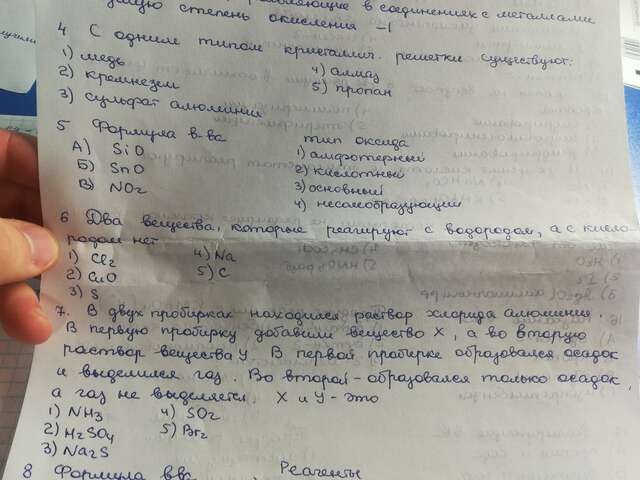 в соединениях с металлами
степень окисления -1
4 С одним типом кристаллич. решетки существуют:
1) медь 4) алмаз
2) кремнезем 5) пропан
3) сульфат алюминия
5 Формула в-ва тип оксида
А) SiO 1) амфотерный
Б) SnO 2) кислотный
В) NO2 3) основный
4) несолеобразующий
6 Два вещества, которые реагируют с водородом, а с кисло
родом нет
1) Cl2 4) Na
2) CuO 5) C
3) S
7. В двух пробирках находился раствор хлорида алюминия.
В первую пробирку добавили вещество X, а во вторую
раствор вещества Y. В первой пробирке образовался осадок
и выделился газ. Во второй - образовался только осадок,
а газ не выделяется. X и Y - это
1) NH3 4) SO2
2) H2SO4 5) Br2
3) Na2S
8 Формула в-ва Реагенты